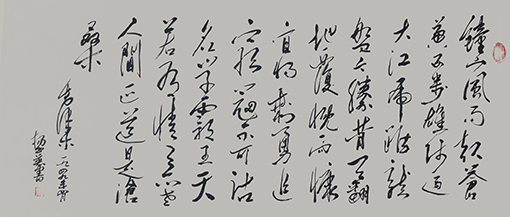 鐘山風雨起蒼
黄百萬雄師過
大江虎踞龍
盤今勝昔天翻
地覆慨而慷
宜將剩勇追
窮寇不可沽
名學霸王天
若有情天亦老
人間正道是滄
桑
一九四九年
書